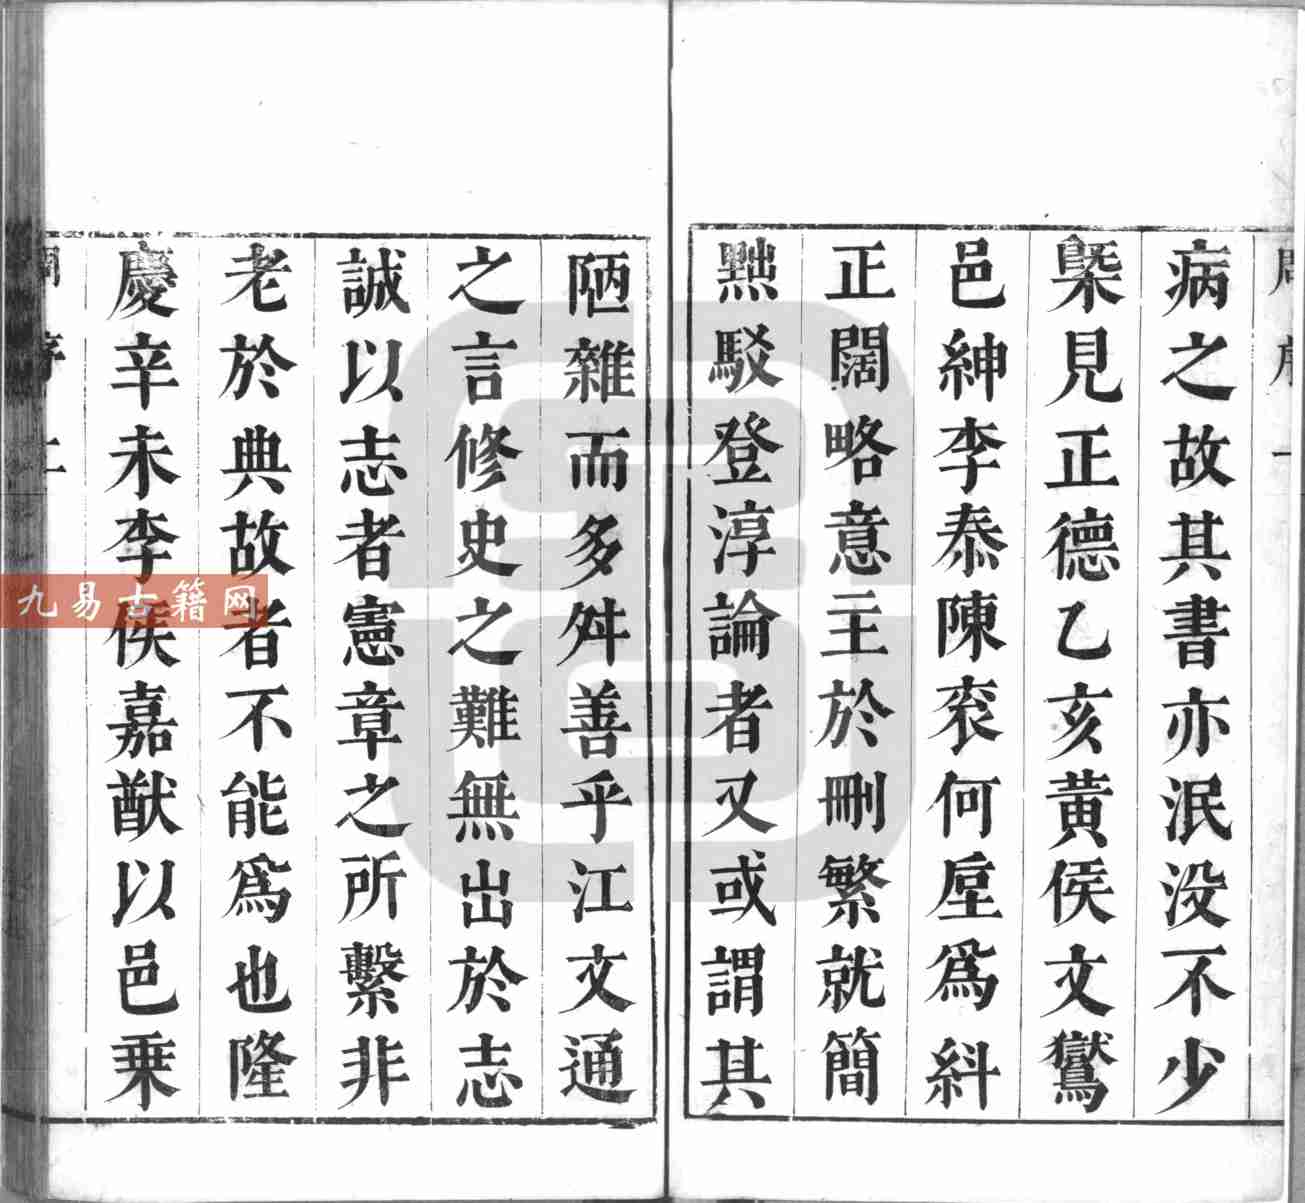 病之故其書亦泯没不少
槩見正德乙亥黄侯文鸑
邑紳李泰陳衮何垕爲糾
正闊略意主於刪繁就簡
黜駁登淳論者又或謂其
陋雜而多舛善乎江文通
之言修史之難無出於志
誠以志者憲章之所繫非
老於典故者不能爲也隆
慶辛未李侯嘉猷以邑乗
九易古籍网